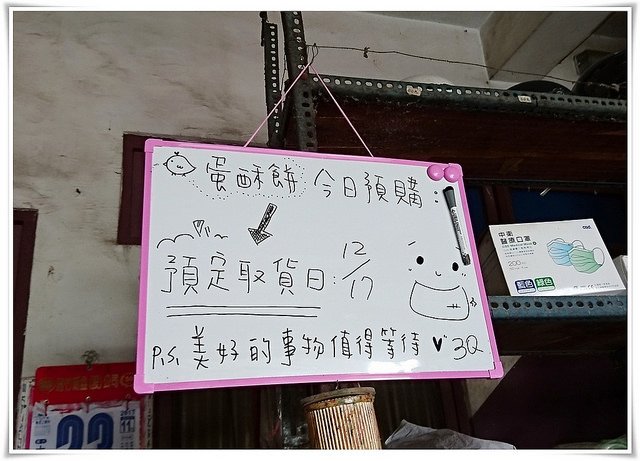 蛋酥餅 今日預購:
預定取貨日: 12/17
P.S. 美好的事物值得等待 ♥ 3Q
中衛
醫療口罩
200
藍色 綠色
2017
11
22